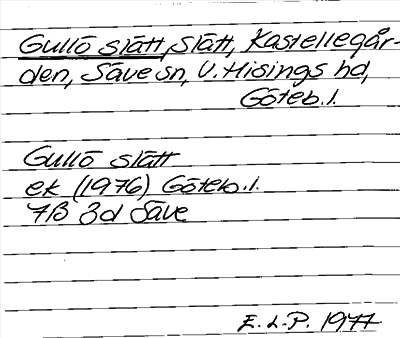 Gullö slätt, Slätt, Kastellegår-
den, Säve sn, V. Hisings hd,
Göteb. l.
Gullö slätt
ek (1976) Göteb. l.
7B 3d Säve
E. L-P. 1977